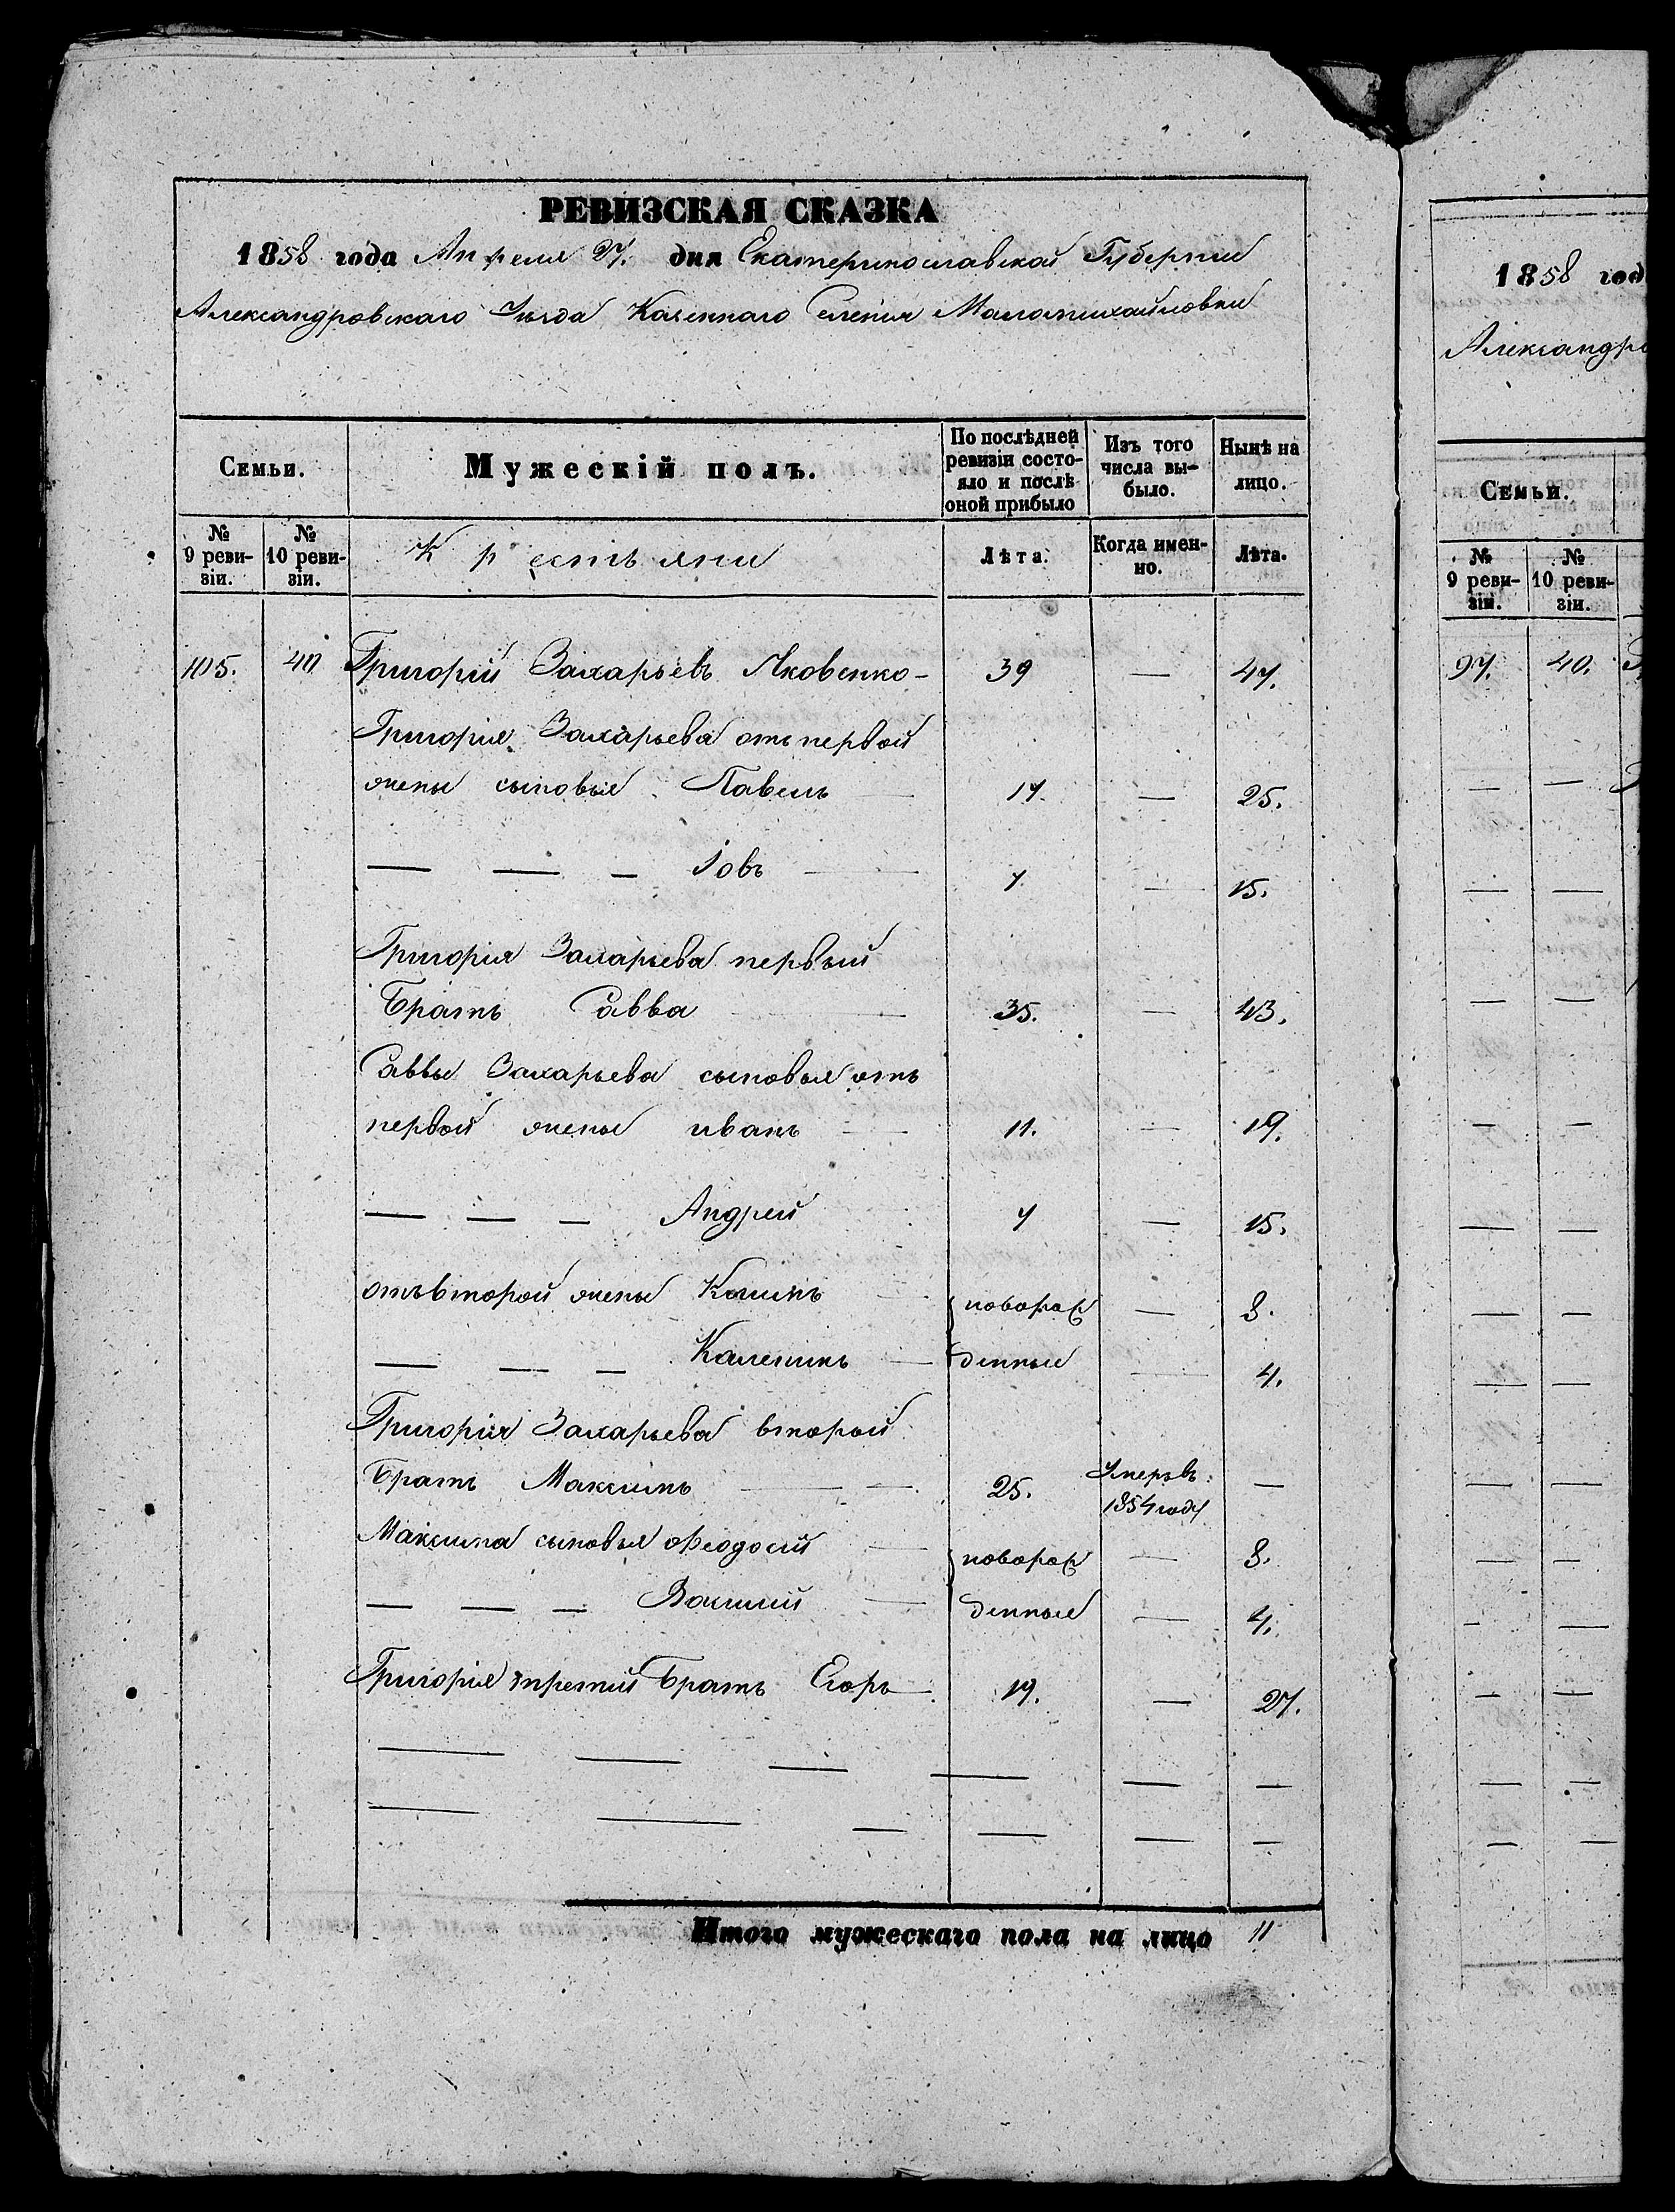 РЕВИЗСКАЯ СКАЗКА
1858 года Апреля 27. дня Екатеринославской Губернии
Александровскаго Уезда Казеннаго Селенія Маломихайловки
Семьи.
Мужескій полъ.
По послѣдней ревизіи состояло и послѣ оной прибыло
Изъ того числа выбыло.
Нынѣ на лицо.
№ 9 ревизіи.
№ 10 ревизіи.
Крестьяни
Лѣта.
Когда именно.
Лѣта.
105. 40 Григорій Захарьевъ Яковенко - 39 — 47.
Григорія Захарьева отъ первой
жены сыновья Павелъ 17. — 25.
— — — Іовъ — 7. — 15.
Григорія Захарьева первый
Братъ Савва — 35. — 43.
Саввы Захарьева сыновья отъ
первой жены иванъ — 11. — 19.
— — — Андрей 7 — 15.
отъ второй жены Климъ — новорож — 8.
— — — Каленикъ — денные — 4.
Григорія Захарьева второй
Братъ Максимъ — — 25. Умеръ въ 1854 году —
Максима сыновья Феодосій — новорож — 8.
— — — Василий — денные — 4.
Григорія третий Братъ Егоръ — 19. — 27.
— — — — — —
— — — — — —
Итого мужескаго пола на лицо 11
1858 год
Александро
Семьи.
№ 9 ревизіи.
№ 10 ревизіи.
97. 40.